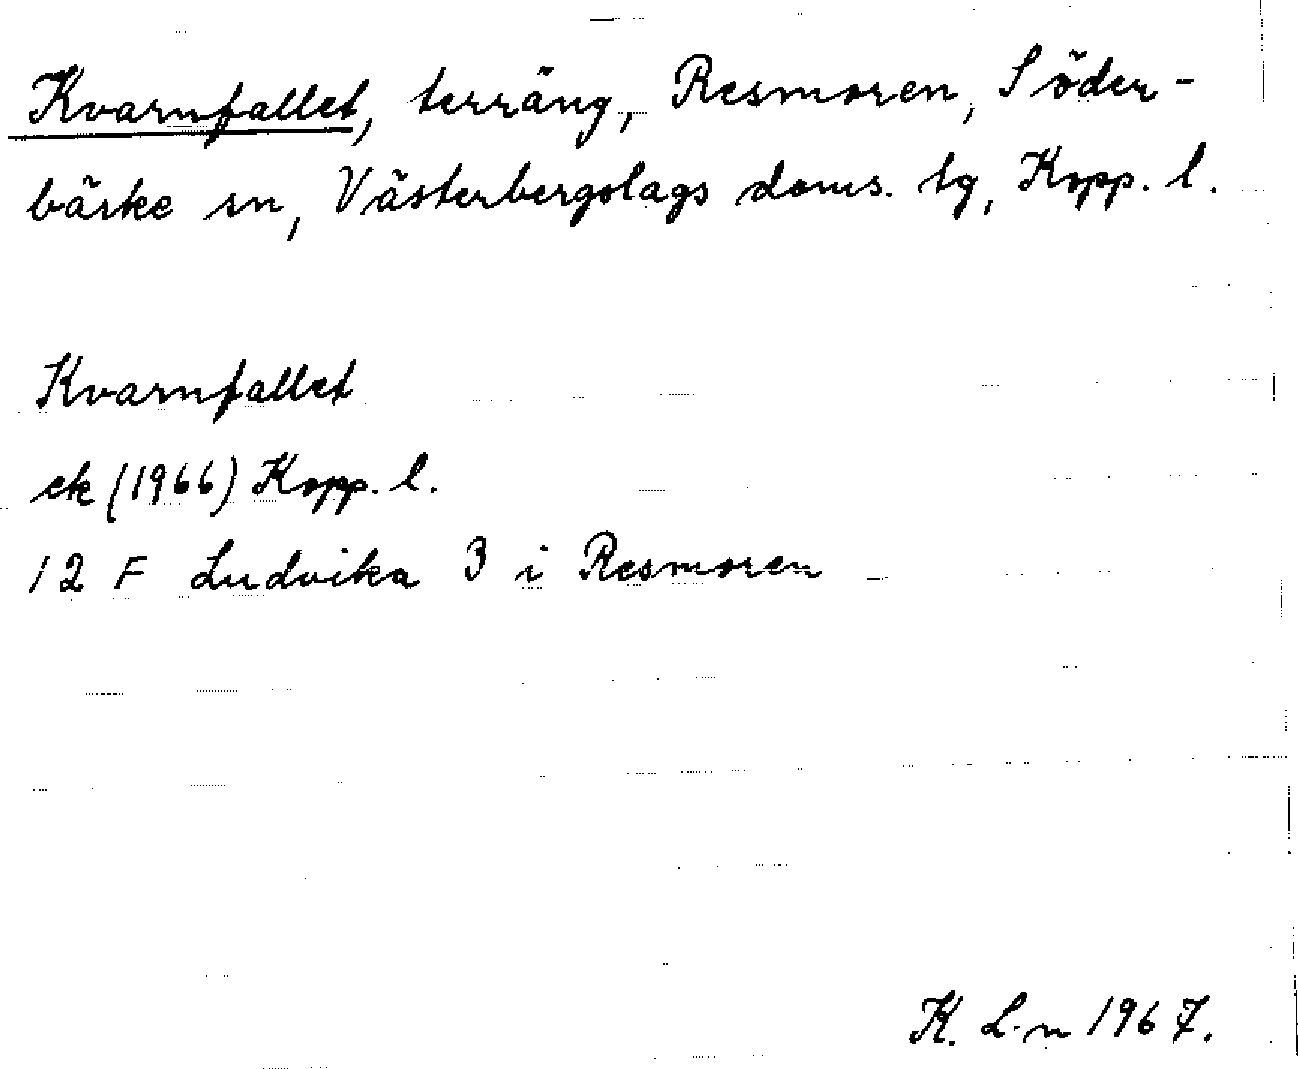 Kvarnfallet, terräng, Resmoren, Söder-
bärke sn, Västerbergslags doms. tg, Kopp. l.
Kvarnfallet
ek (1966) Kopp. l.
12 F Ludvika 3 i Resmoren
K. L-n 1967.